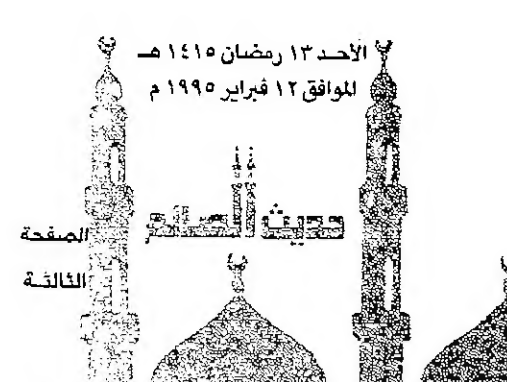 الأحـد ١٣ رمضان ١٤١٥ هـ
الموافق ١٢ فبراير ١٩٩٥ م
حديث
الصفحة
الثالثـة